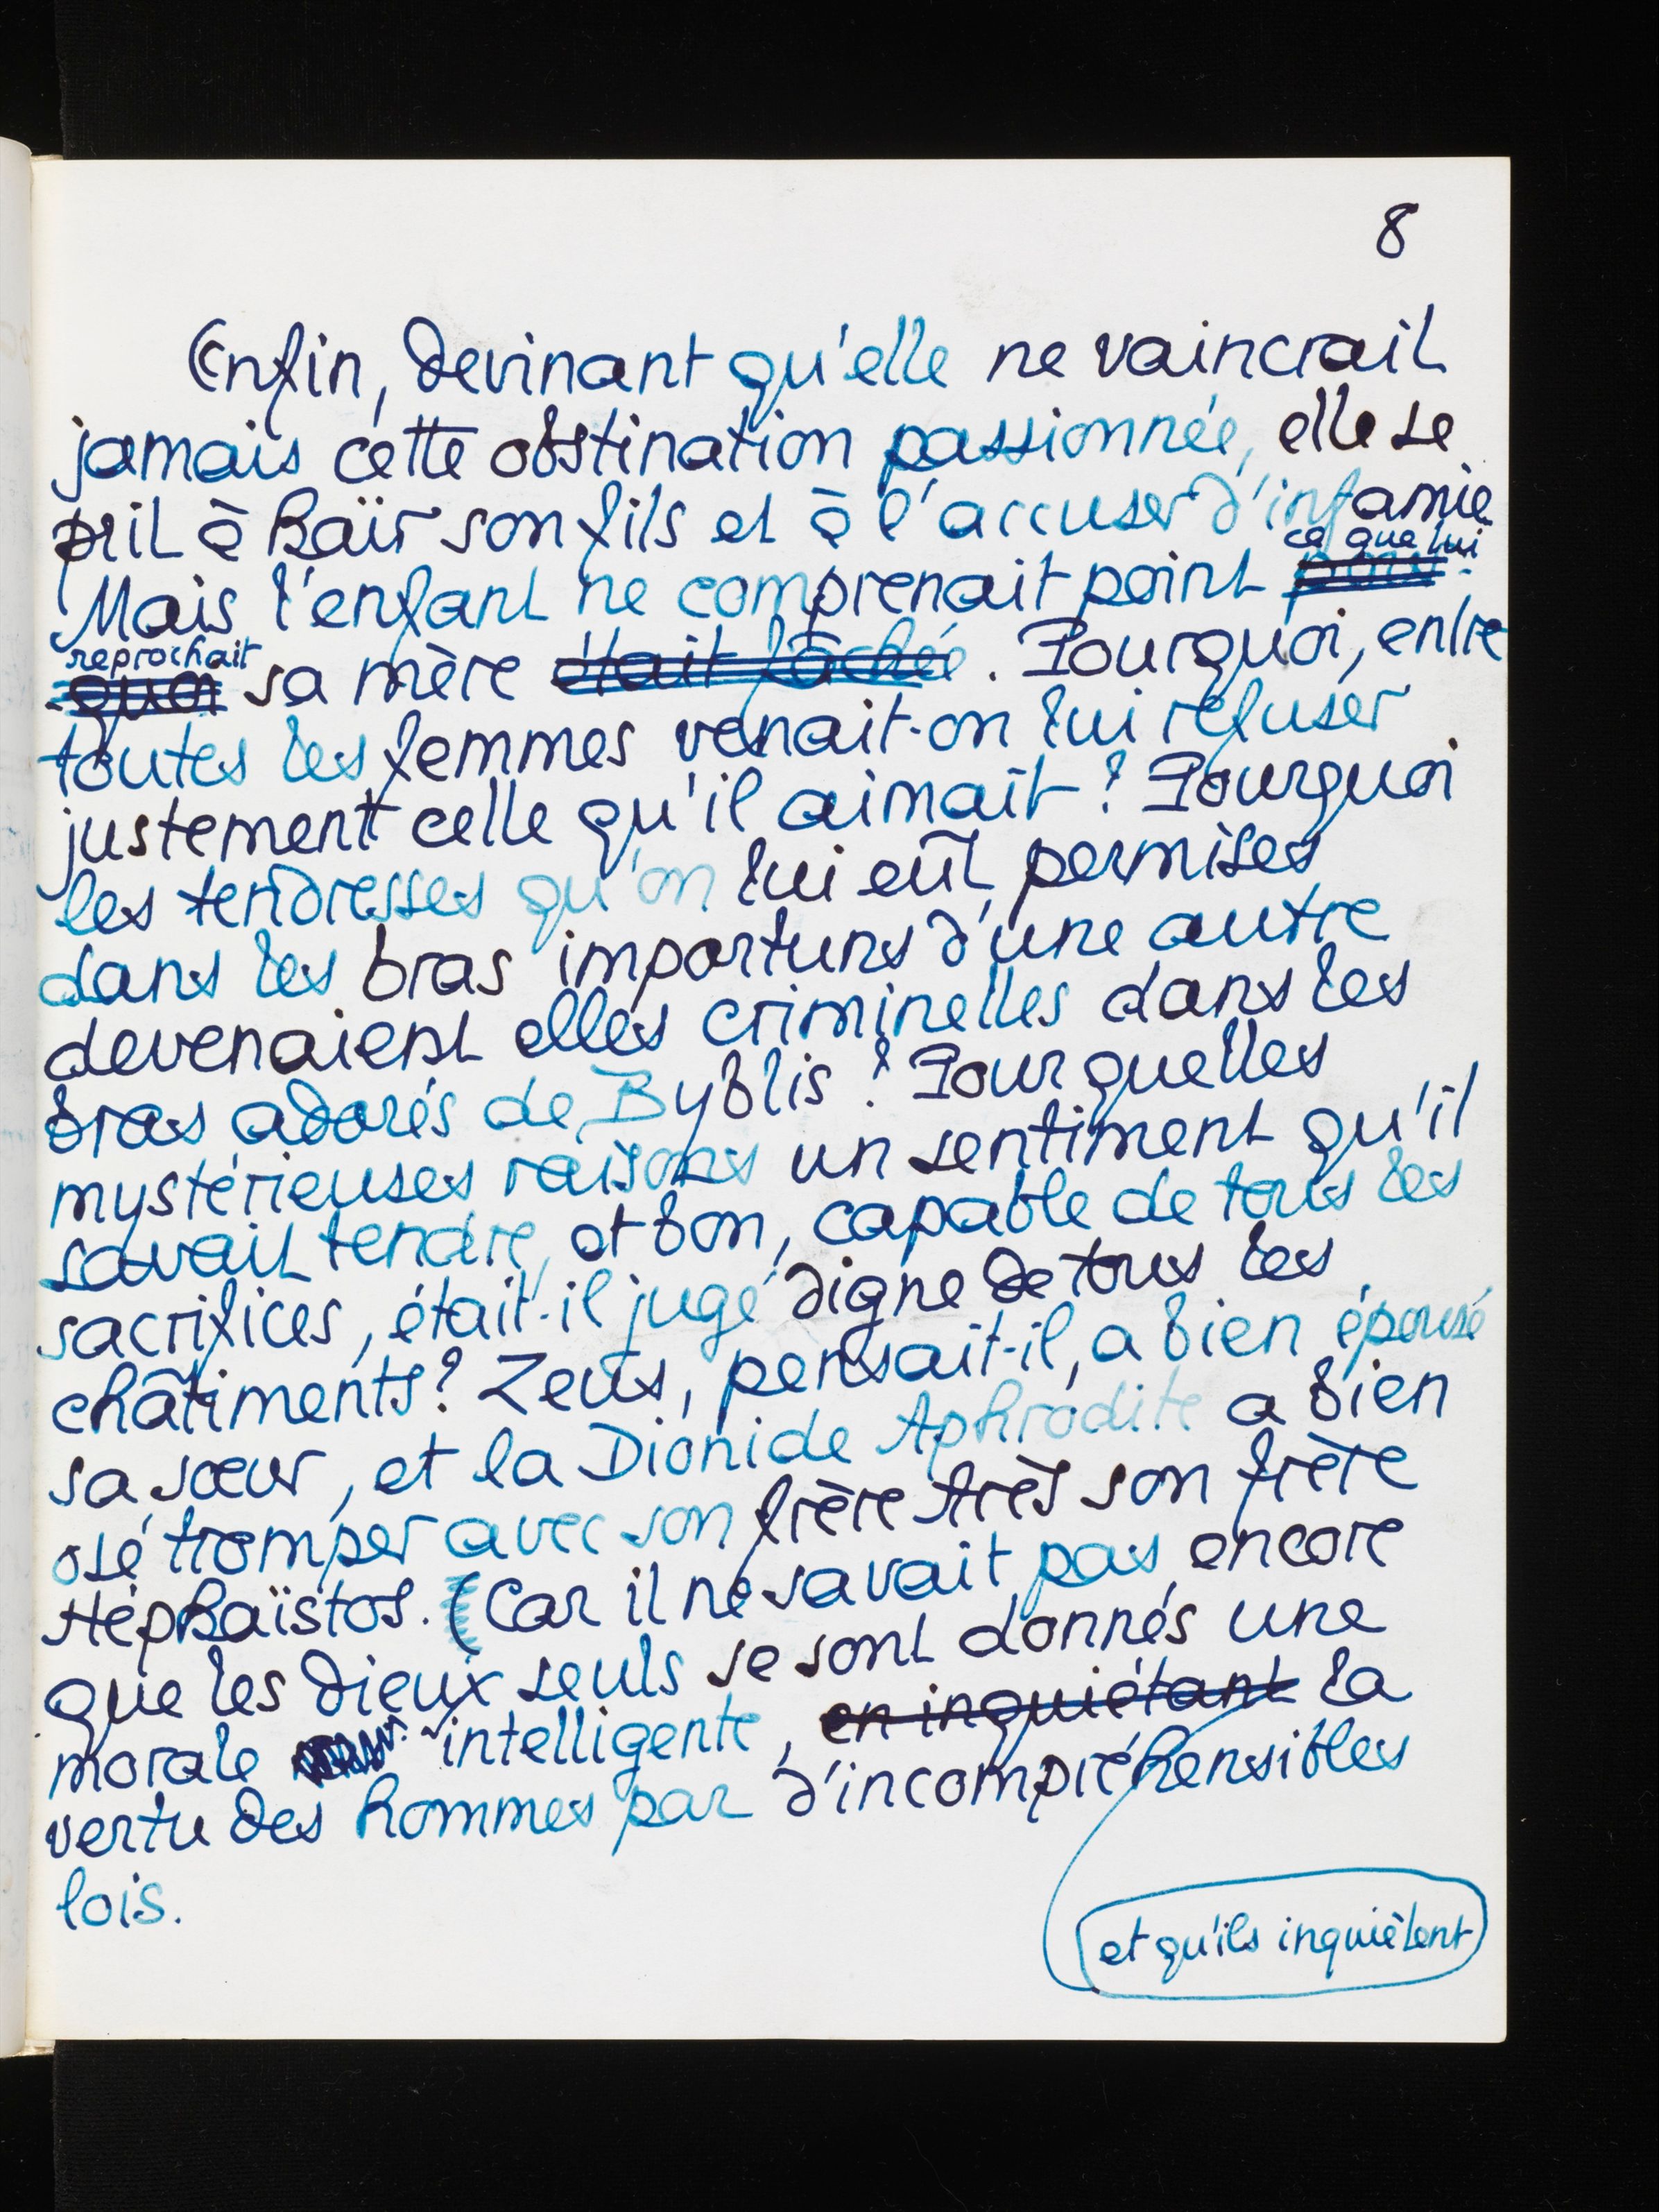 8
Enfin, devinant qu'elle ne vaincrait
jamais cette obstination passionnée, elle se
prit à haïr son fils et à l'accuser d'infamie.
ce que lui
Mais l'enfant ne comprenait point pour-
reprochait
-quoi sa mère était fâchée. Pourquoi, entre
toutes les femmes venait-on lui refuser
justement celle qu'il aimait? Pourquoi
les tendresses qu'on lui eût permises
dans les bras importuns d'une autre
devenaient elles criminelles dans les
bras adorés de Byblis? Pour quelles
mystérieuses raisons un sentiment qu'il
savait tendre, et bon, capable de tous les
sacrifices, était-il jugé digne de tous les
châtiments? Zeus, pensait-il, a bien épousé
sa sœur, et la Dionide Aphrodite a bien
osé tromper avec son frère Arès son frère
Héphaïstos. (Car il ne savait pas encore
que les dieux seuls se sont donnés une
morale intelligente, en inquiétant la
vertu des hommes par d'incompréhensibles
lois.
et qu'ils inquiètent